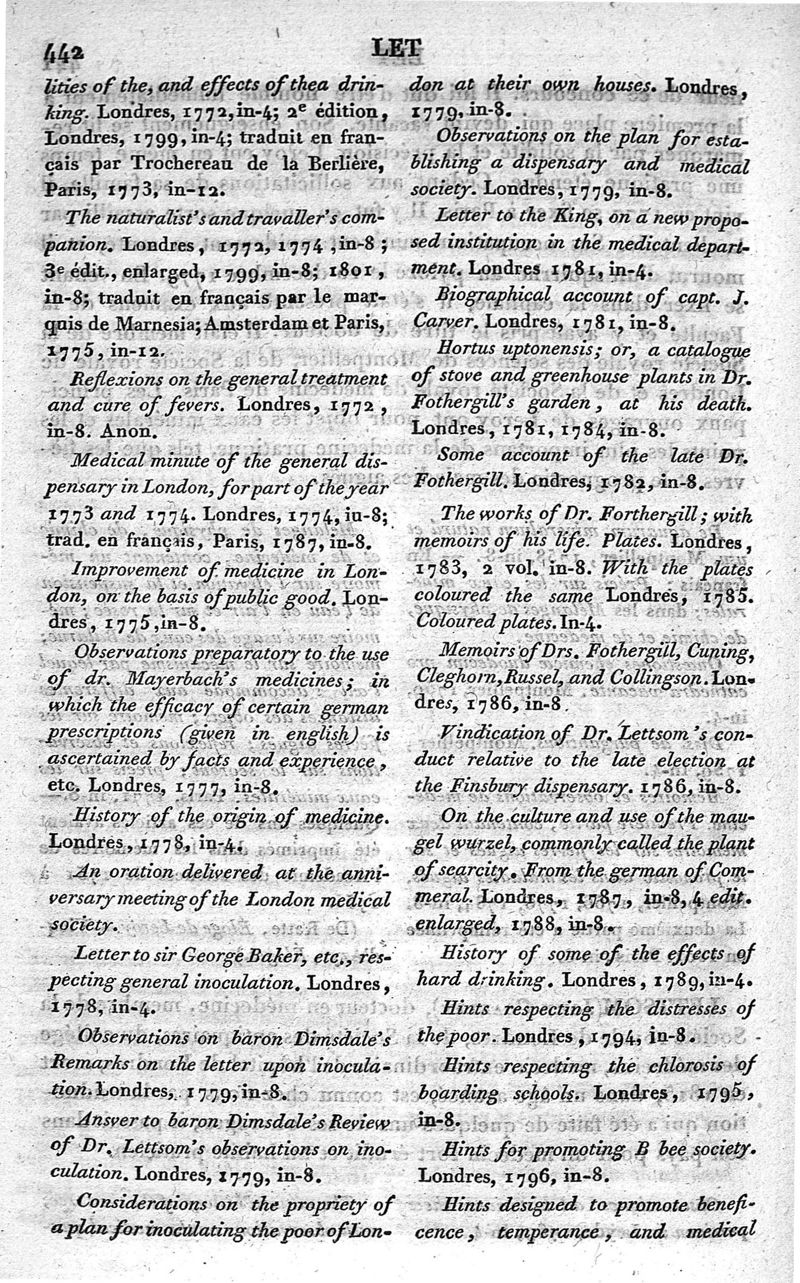 442
LET
lities of the, and effects of thea drin-
king. Londres, 1772, in-4; 2e édition,
Londres, 1799, in-4; traduit en fran-
çais par Trochereau de la Berlière,
Paris, 1773, in-12.
The naturalist's and travaller's com-
panion. Londres, 1772, 1774, in-8;
3e édit., enlarged, 1799, in-8; 1801,
in-8; traduit en français par le mar-
quis de Marnesia; Amsterdam et Paris,
1775, in-12.
Reflexions on the general treatment
and cure of fevers. Londres, 1772,
in-8. Anon.
Medical minute of the general dis-
pensary in London, for part of the year
1773 and 1774. Londres, 1774, iu-8;
trad. en français, Paris, 1787, in-8.
Improvement of medicine in Lon-
don, on the basis of public good. Lon-
dres, 1775, in-8.
Observations preparatory to the use
of dr. Mayerbach's medicines; in
which the efficacy of certain german
prescriptions (given in english) is
ascertained by facts and experience,
etc. Londres, 1777, in-8.
History of the origin of medicine.
Londres, 1778, in-4.
An oration delivered at the anni-
versary meeting of the London medical
society.
Letter to sir George Baker, etc., res-
pecting general inoculation. Londres,
1778, in-4.
Observations on baron Dimsdale's
Remarks on the letter upon inocula-
tion. Londres, 1779, in-8.
Ansver to baron Dimsdale's Review
of Dr. Lettsom's observations on ino-
culation. Londres, 1779, in-8.
Considerations on the propriety of
a plan for inoculating the poor of Lon-
don at their own houses. Londres,
1779, in-8.
Observations on the plan for esta-
blishing a dispensary and medical
society. Londres, 1779, in-8.
Letter to the King, on a new propo-
sed institution in the medical depart-
ment. Londres 1781, in-4.
Biographical account of capt. J.
Carver. Londres, 1781, in-8.
Hortus uptonensis; or, a catalogue
of stove and greenhouse plants in Dr.
Fothergill's garden, at his death.
Londres, 1781, 1784, in-8.
Some account of the late Dr.
Fothergill. Londres, 1782, in-8.
The works of Dr. Forthergill; with
memoirs of his life. Plates. Londres,
1783, 2 vol. in-8. With the plates
coloured the same Londres, 1785.
Coloured plates. In-4.
Memoirs of Drs. Fothergill, Cuning,
Cleghorn, Russel, and Collingson. Lon-
dres, 1786, in-8.
Vindication of Dr. Lettsom's con-
duct relative to the late election at
the Finsbury dispensary. 1786, in-8.
On the culture and use of the mau-
gel wurzel, commonly called the plant
of scarcity. From the german of Com-
meral. Londres, 1787, in-8, 4 edit.
enlarged, 1788, in-8.
History of some of the effects of
hard drinking. Londres, 1789, in-4.
Hints respecting the distresses of
the poor. Londres, 1794, in-8.
Hints respecting the chlorosis of
boarding schools. Londres, 1795,
in-8.
Hints for promoting B bee society.
Londres, 1796, in-8.
Hints designed to promote benefi-
cence, temperance, and medical